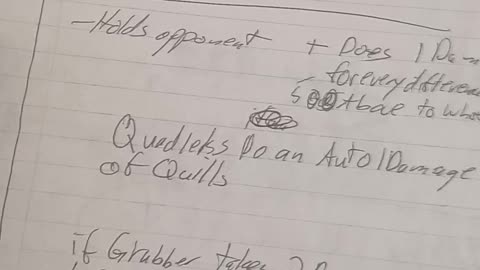 - Holds opponent + Does 1 Da
for every differen
to wh
Quadlets Do an Auto 1 Damage
of Quills
if Grubber taken 2 D